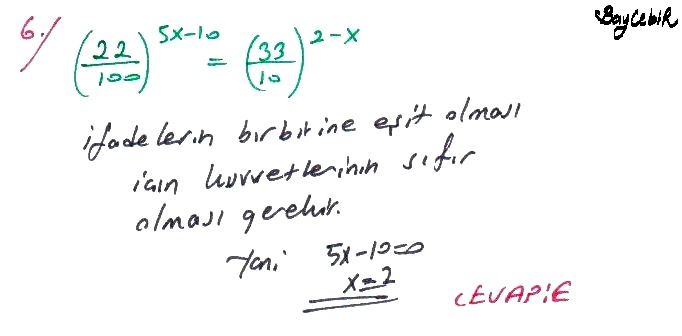 BayCebiR
6.) (22/100)^(5x-10) = (33/10)^(2-x)
ifadelerin birbirine eşit olması
için kuvvetlerinin sıfır
olması gerekir.
Yani 5x-10=0
x=2
CEVAP:E